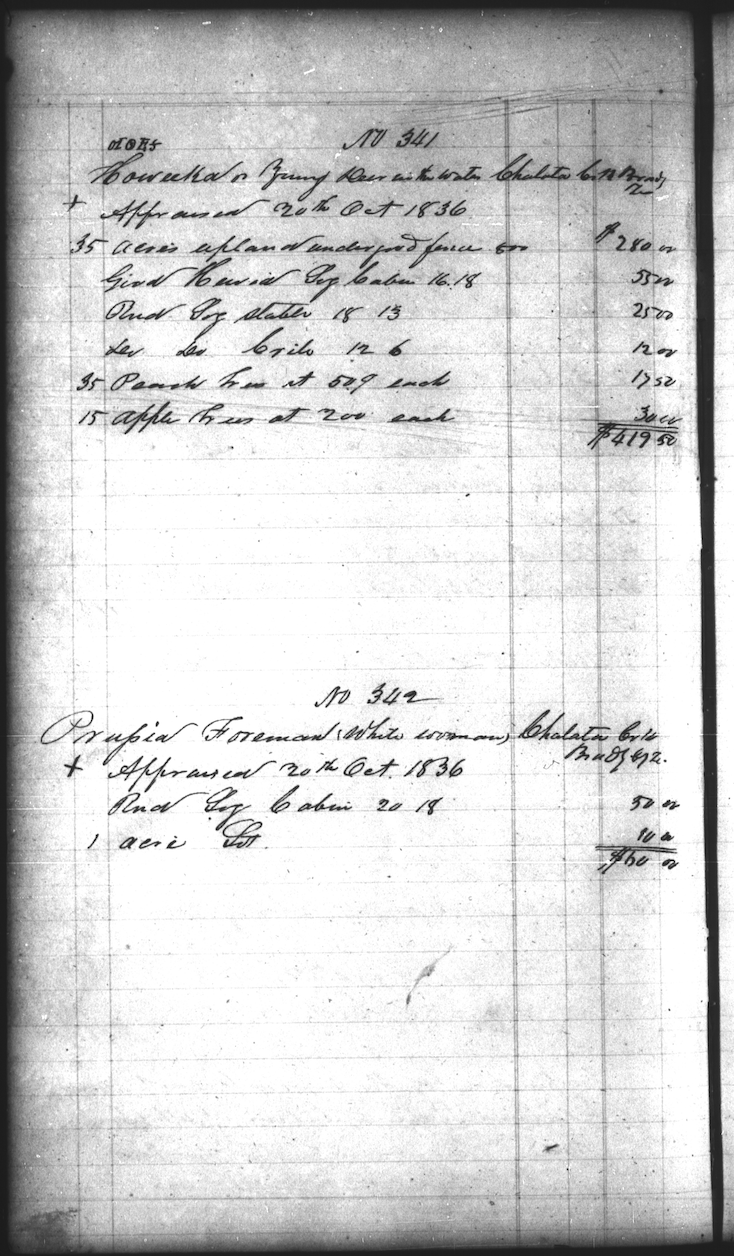 No 341
Howeeka or Young Deer in the water Chalata Crk Bradly
+ Appraised 20th Oct 1836
35 acres upland under good fence $280 00
Good Hewed Log Cabin 16.18 55 00
Rnd Log Stable 18 13 25 00
do do Crib 12 6 12 00
35 Peach trees at 50 each 17 50
15 Apple trees at 200 each 30 00
$419 50
No 342
Prusia Foreman (White woman) Chalata Crk
Bradly
+ Appraised 20th Oct. 1836
Rnd Log Cabin 20 18 50 00
1 acre Lot 10 00
$60 00